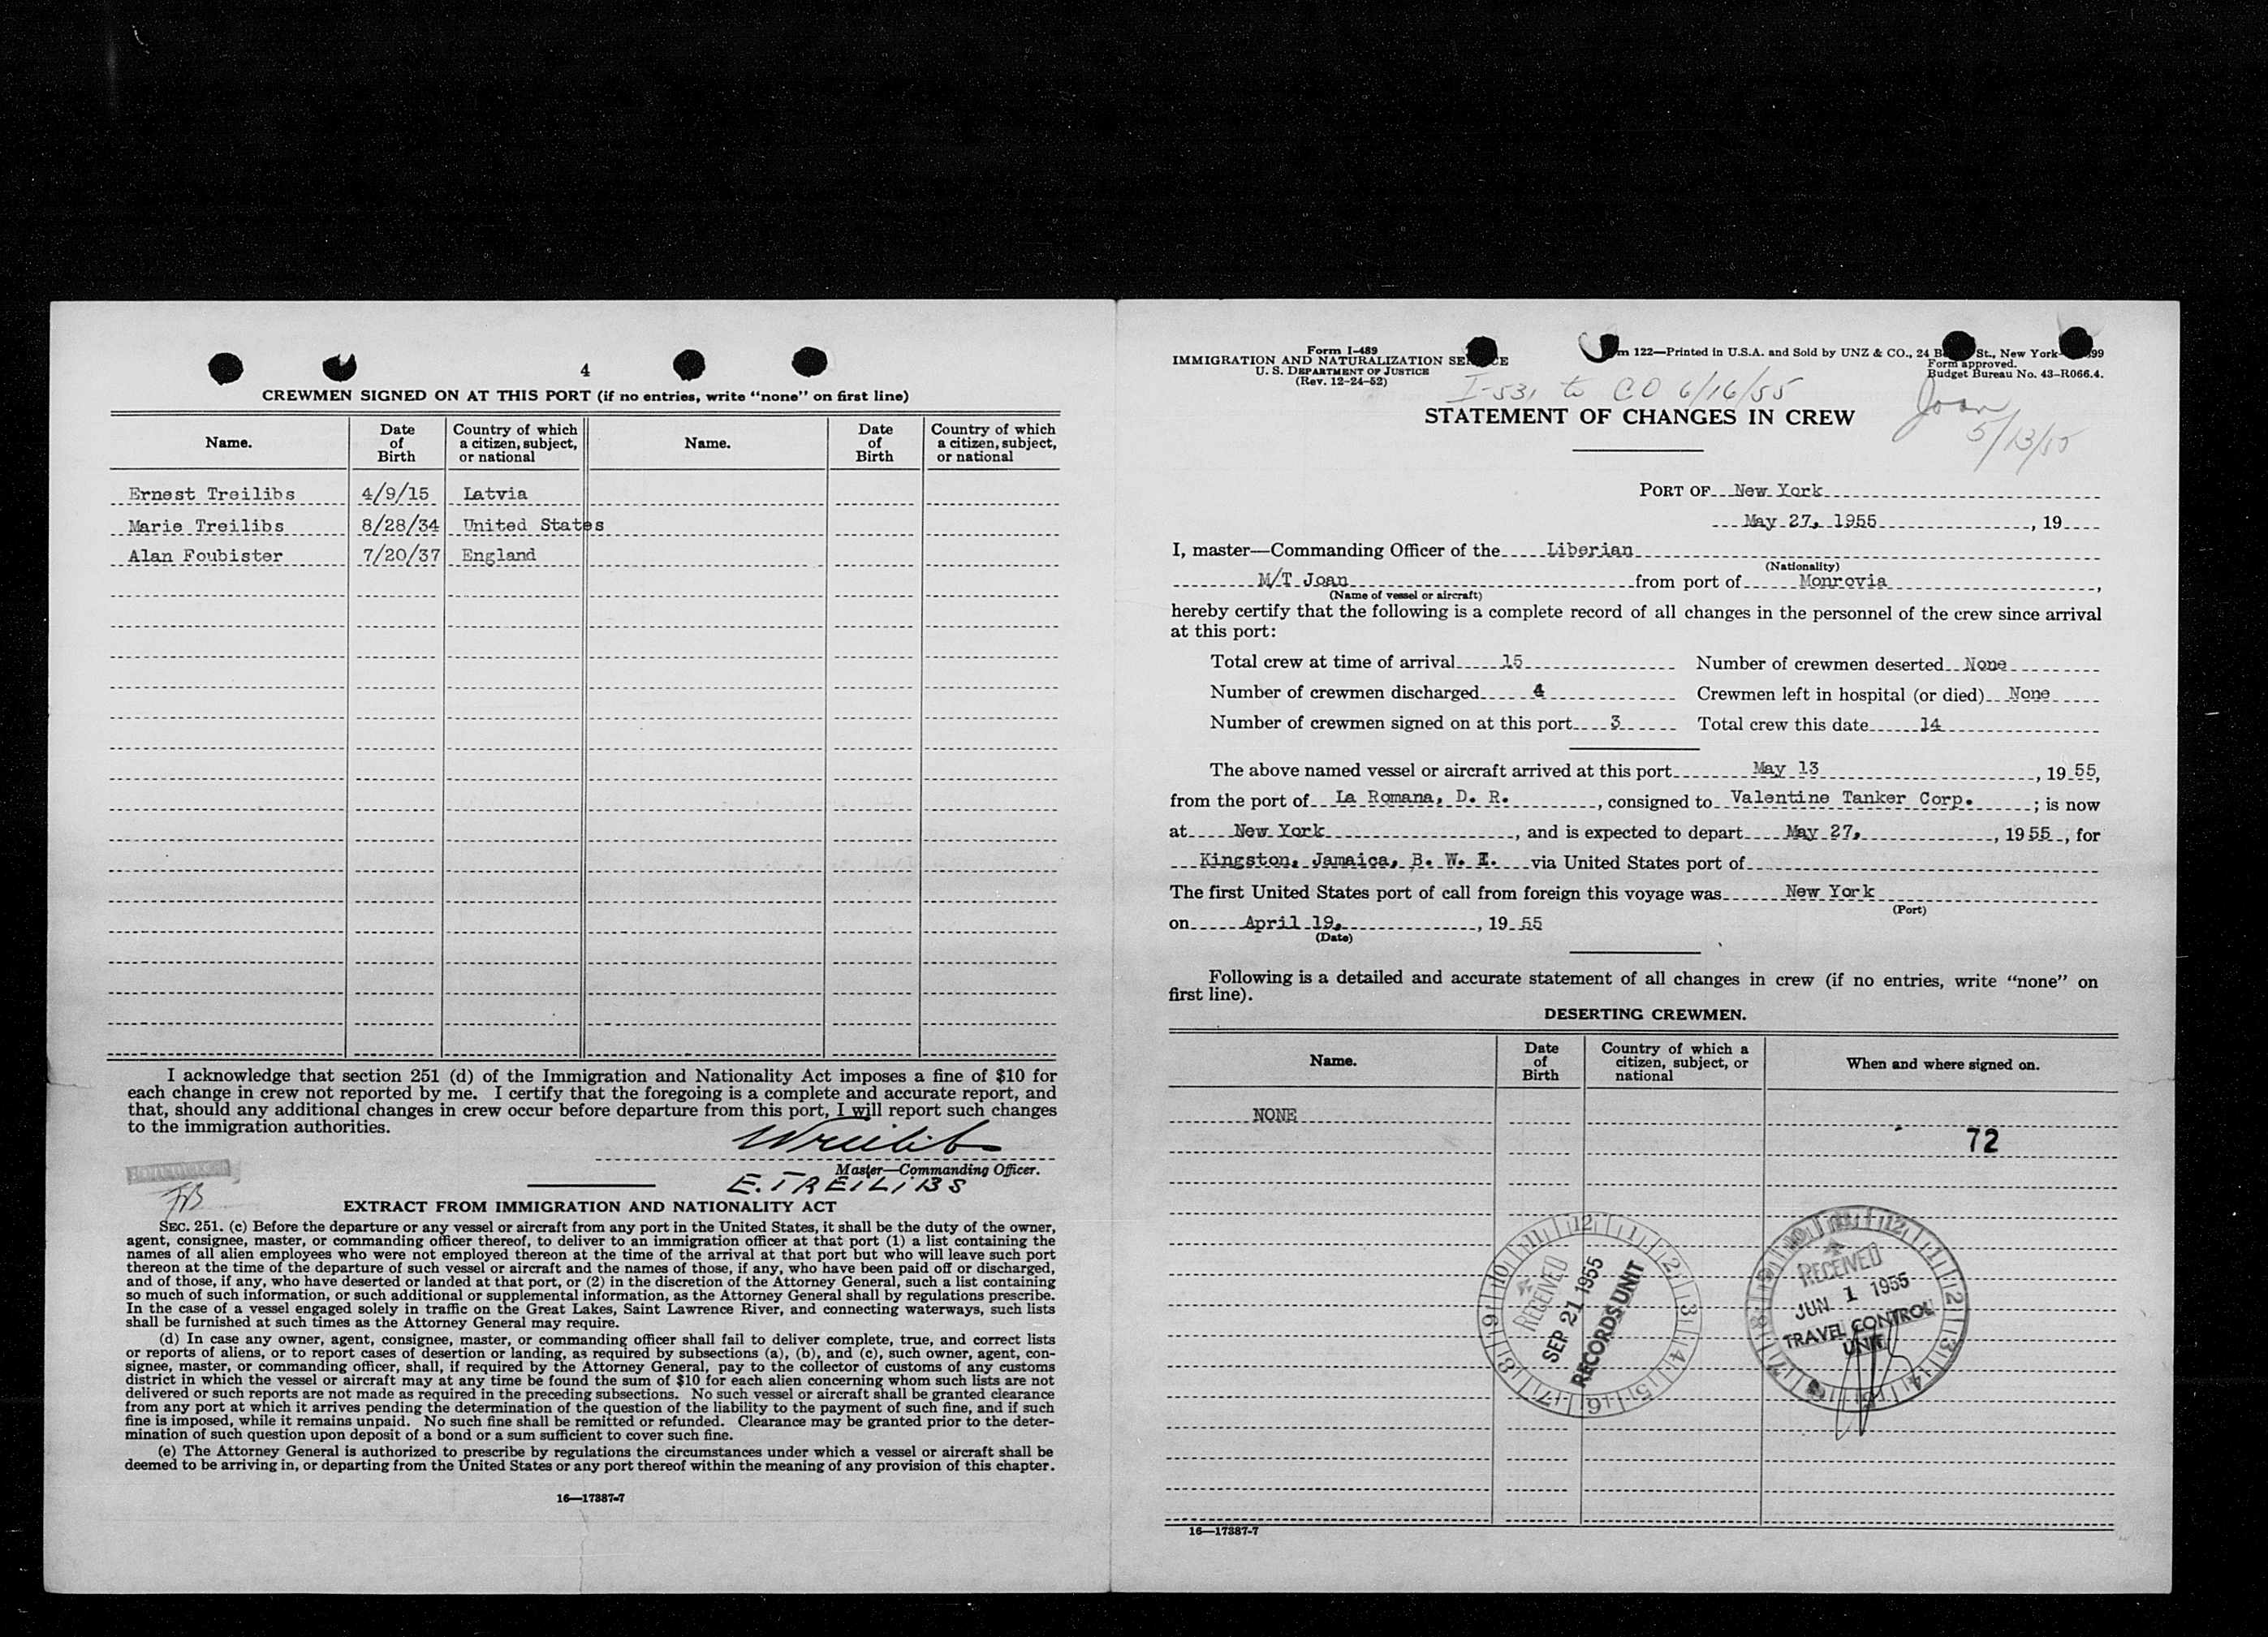 4
CREWMEN SIGNED ON AT THIS PORT (if no entries, write "none" on first line)
Name. Date of Birth Country of which a citizen, subject, or national Name. Date of Birth Country of which a citizen, subject, or national
Ernest Treilibs 4/9/15 Latvia
Marie Treilibs 8/28/34 United States
Alan Foubister 7/20/37 England
I acknowledge that section 251 (d) of the Immigration and Nationality Act imposes a fine of $10 for
each change in crew not reported by me. I certify that the foregoing is a complete and accurate report, and
that, should any additional changes in crew occur before departure from this port, I will report such changes
to the immigration authorities.
Master—Commanding Officer.
E. TREILIBS
EXTRACT FROM IMMIGRATION AND NATIONALITY ACT
SEC. 251. (c) Before the departure or any vessel or aircraft from any port in the United States, it shall be the duty of the owner,
agent, consignee, master, or commanding officer thereof, to deliver to an immigration officer at that port (1) a list containing the
names of all alien employees who were not employed thereon at the time of the arrival at that port but who will leave such port
thereon at the time of the departure of such vessel or aircraft and the names of those, if any, who have been paid off or discharged,
and of those, if any, who have deserted or landed at that port, or (2) in the discretion of the Attorney General, such a list containing
so much of such information, or such additional or supplemental information, as the Attorney General shall by regulations prescribe.
In the case of a vessel engaged solely in traffic on the Great Lakes, Saint Lawrence River, and connecting waterways, such lists
shall be furnished at such times as the Attorney General may require.
(d) In case any owner, agent, consignee, master, or commanding officer shall fail to deliver complete, true, and correct lists
or reports of aliens, or to report cases of desertion or landing, as required by subsections (a), (b), and (c), such owner, agent, con-
signee, master, or commanding officer, shall, if required by the Attorney General, pay to the collector of customs of any customs
district in which the vessel or aircraft may at any time be found the sum of $10 for each alien concerning whom such lists are not
delivered or such reports are not made as required in the preceding subsections. No such vessel or aircraft shall be granted clearance
from any port at which it arrives pending the determination of the question of the liability to the payment of such fine, and if such
fine is imposed, while it remains unpaid. No such fine shall be remitted or refunded. Clearance may be granted prior to the deter-
mination of such question upon deposit of a bond or a sum sufficient to cover such fine.
(e) The Attorney General is authorized to prescribe by regulations the circumstances under which a vessel or aircraft shall be
deemed to be arriving in, or departing from the United States or any port thereof within the meaning of any provision of this chapter.
16—17387-7
Form I-489
IMMIGRATION AND NATURALIZATION
U. S. DEPARTMENT OF JUSTICE
(Rev. 12-24-52)
122—Printed in U.S.A. and Sold by UNZ & CO., 24 St., New York
Form approved.
Budget Bureau No. 43-R066.4.
I-531 to CO 6/16/55
Joan
5/13/55
STATEMENT OF CHANGES IN CREW
PORT OF New York
May 27, 1955, 19
I, master—Commanding Officer of the Liberian
(Nationality)
M/T Joan from port of Monrovia,
(Name of vessel or aircraft)
hereby certify that the following is a complete record of all changes in the personnel of the crew since arrival
at this port:
Total crew at time of arrival 15 Number of crewmen deserted None
Number of crewmen discharged 4 Crewmen left in hospital (or died) None
Number of crewmen signed on at this port 3 Total crew this date 14
The above named vessel or aircraft arrived at this port May 13, 1955,
from the port of La Romana, D. R., consigned to Valentine Tanker Corp.; is now
at New York, and is expected to depart May 27,, 1955, for
Kingston, Jamaica, B. W. I. via United States port of
The first United States port of call from foreign this voyage was New York
(Port)
on April 19,, 1955
(Date)
Following is a detailed and accurate statement of all changes in crew (if no entries, write "none" on
first line).
DESERTING CREWMEN.
Name. Date of Birth Country of which a citizen, subject, or national When and where signed on.
NONE
72
RECEIVED
SEP 21 1955
RECORDS UNIT
RECEIVED
JUN 1 1955
TRAVEL CONTROL
UNIT
16—17387-7